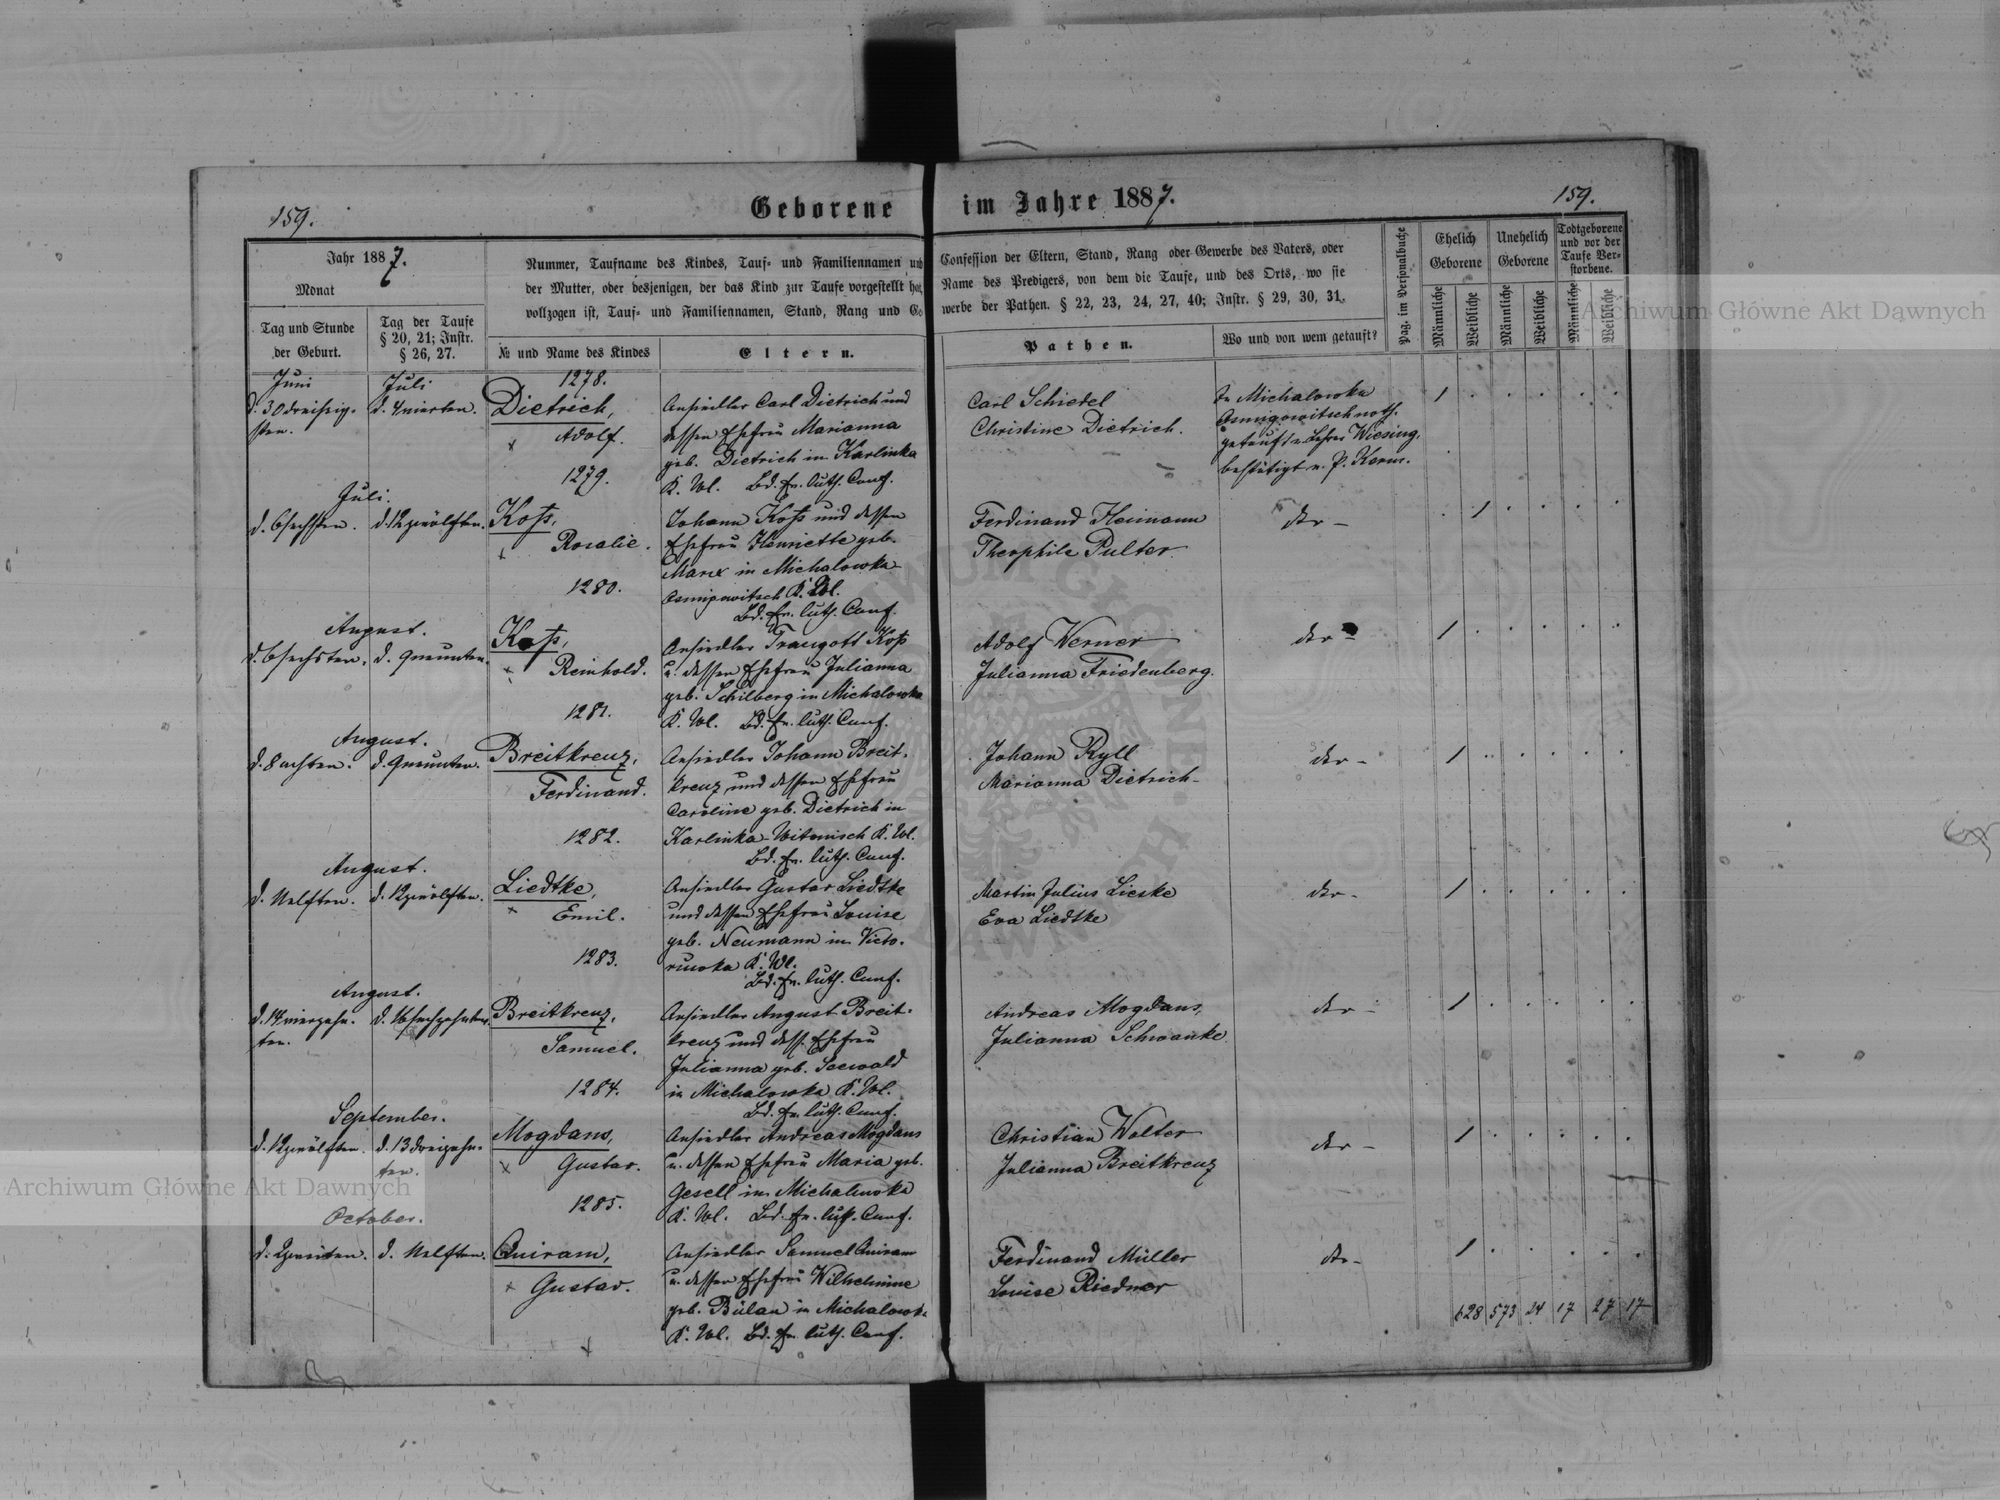 159.
Geborene im Jahre 1887.
159.
Jahr 1887.
Monat
Tag und Stunde
der Geburt.
Tag der Taufe
§ 20, 21; Instr.
§ 26, 27.
Nummer, Taufname des Kindes, Tauf- und Familiennamen und
der Mutter, oder desjenigen, der das Kind zur Taufe vorgestellt hat,
vollzogen ist, Tauf- und Familiennamen, Stand, Rang und Ge-
№ und Name des Kindes
Eltern.
Confession der Eltern, Stand, Rang oder Gewerbe des Vaters, oder
Name des Predigers, von dem die Taufe, und des Orts, wo sie
werbe der Pathen. § 22, 23, 24, 27, 40; Instr. § 29, 30, 31.
Pathen.
Wo und von wem getauft?
Pag. im Personalbuche
Ehelich
Geborene
Unehelich
Geborene
Todtgeborene
und vor der
Taufe Ver-
storbene.
Männliche
Weibliche
Männliche
Weibliche
Männliche
Weibliche
Archiwum Główne Akt Dawnych
Juni
d. 30 dreißig-
sten.
Juli
d. 4 vierten.
1278.
Dietrich,
Adolf.
Ansiedler Carl Dietrich und
dessen Ehefrau Marianna
geb. Dietrich in Karlinka
K. Wl. Bd. Ev. luth. Conf.
Carl Schietel
Christine Dietrich.
In Michalowka
getauft v. Lehrer Wiesing,
bestätigt v. P. Kerm.
1
Juli.
d. 6 sechsten.
d. 12 zwölften.
1279.
Koß,
Rosalie.
Johann Koß und dessen
Ehefrau Henriette geb.
Marx in Michalowka
K. Wl.
Bd. Ev. luth. Conf.
Ferdinand Heimann
Theophile Pulter.
dto –
1
August.
d. 6 sechsten.
d. 9 neunten.
1280.
Koß,
Reinhold.
Ansiedler Traugott Koß
u. dessen Ehefrau Julianna
geb. Schilberg in Michalowka
K. Wl. Bd. Ev. luth. Conf.
Adolf Werner
Julianna Friedenberg.
dto –
1
August.
d. 8 achten.
d. 9 neunten.
1281.
Breitkreuz,
Ferdinand.
Ansiedler Johann Breit-
kreuz und dessen Ehefrau
Caroline geb. Dietrich in
Karlinka K. Wl.
Bd. Ev. luth. Conf.
Johann Ryll
Marianna Dietrich
dto –
1
August.
d. 11 elften.
d. 12 zwölften.
1282.
Liedtke,
Emil.
Ansiedler Gustav Liedtke
und dessen Ehefrau Louise
geb. Neumann in Victo-
rowka K. Wl.
Bd. Ev. luth. Conf.
Martin Julius Lieske
Eva Liedtke
dto –
1
August.
d. 14 vierzehn-
ten.
d. 16 sechzehnten.
1283.
Breitkreuz,
Samuel.
Ansiedler August Breit-
kreuz und dess. Ehefrau
Julianna geb. Seewald
in Michalowka K. Wl.
Bd. Ev. luth. Conf.
Andreas Mogdans,
Julianna Schwanke.
dto –
1
September.
d. 12 zwölften.
d. 13 dreizehn-
ten.
1284.
Mogdans,
Gustav.
Ansiedler Andreas Mogdans
u. dessen Ehefrau Maria geb.
Gesell in Michalowka
K. Wl. Bd. Ev. luth. Conf.
Christian Walter
Julianna Breitkreuz
dto –
1
October.
d. 2 zweiten.
d. 11 elften.
1285.
Quiram,
Gustav.
Ansiedler Samuel Quiram
u. dessen Ehefrau Wilhelmine
geb. Bülau in Michalowka
K. Wl. Bd. Ev. luth. Conf.
Ferdinand Müller
Louise Riedner
dto –
1
628 573 24 17 27 17
Archiwum Główne Akt Dawnych